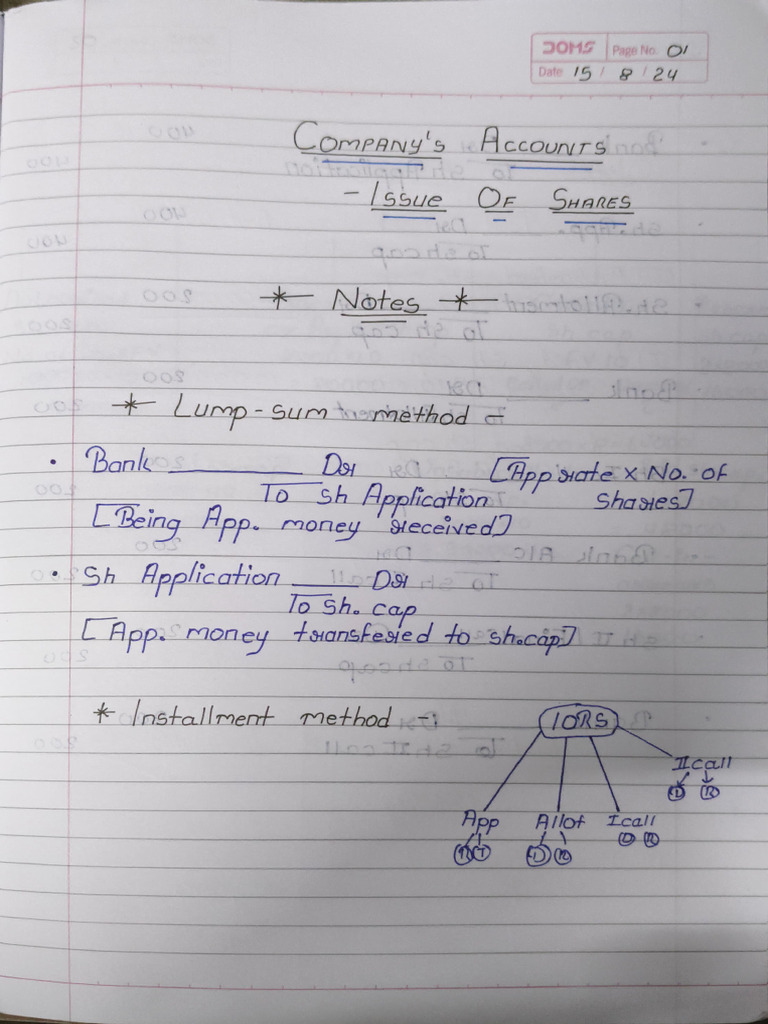 DOMS Page No. 01
Date 15 / 8 / 24
COMPANY'S ACCOUNTS
- ISSUE OF SHARES
* Notes *
* Lump-sum method -
• Bank ________ Dr [App rate x No. of
To Sh Application Shares]
[Being App. money received]
• Sh Application ____ Dr
To Sh. cap
[App. money transfered to sh.cap]
* Installment method -:
10RS
II call
D R
App Allot I call
R T D R D R